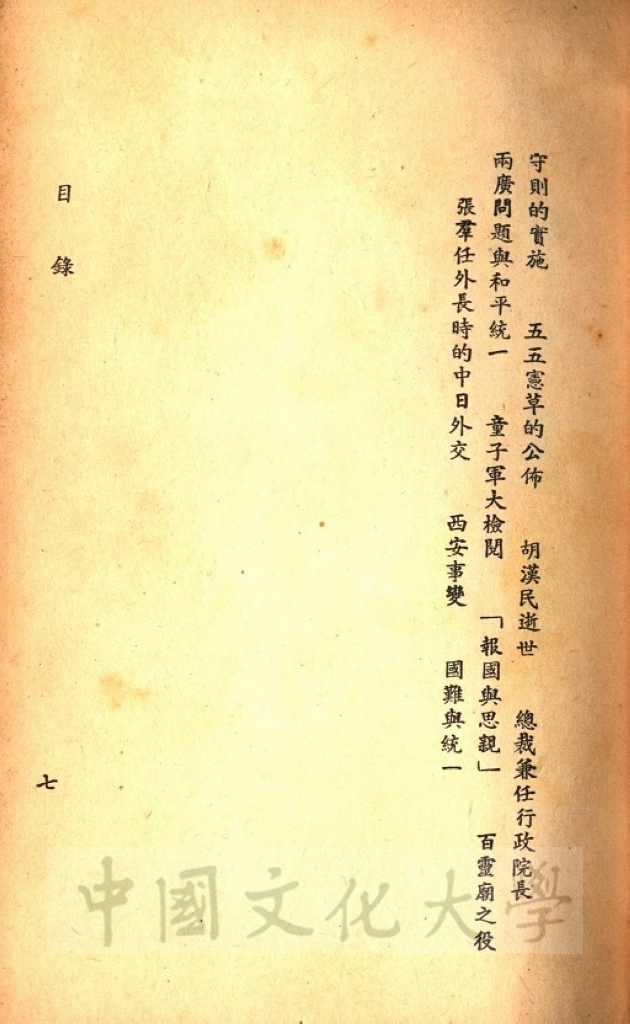 守則的實施　五五憲草的公佈　胡漢民逝世　總裁兼任行政院長
兩廣問題與和平統一　童子軍大檢閱　「報國與思親」　百靈廟之役
張羣任外長時的中日外交　西安事變　國難與統一
目錄
七
中國文化大學